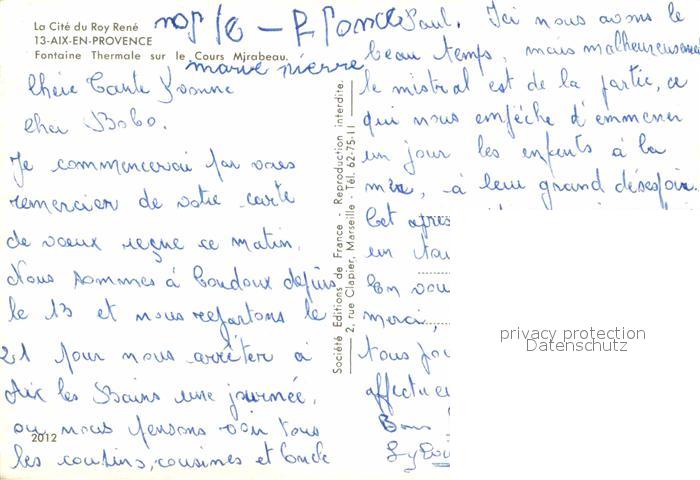 La Cité du Roy René
13-AIX-EN-PROVENCE
Fontaine Thermale sur le Cours Mirabeau.
marie pierre
Chère Tante Yvonne
Cher Bobo.
Je commencerai par vous
remercier de votre carte
de voeux reçue ce matin.
Nous sommes à Coudoux depuis
le 13 et nous repartons le
21 pour nous arrêter à
Aix les Bains une journée,
où nous pensons voir tous
les cousins, cousines et Oncle
2012
Société Editions de France - Reproduction interdite.
2, rue Clapier, Marseille - Tél. 62-75-11
Paul. Ici nous avons le
beau temps, mais malheureusement
le mistral est de la partie, ce
qui nous empêche d'emmener
un jour les enfants à la
mer, à leur grand désespoir.
Cet après
un tou
En vou
merci,
tous
affectue
Bons
privacy protection
Datenschutz